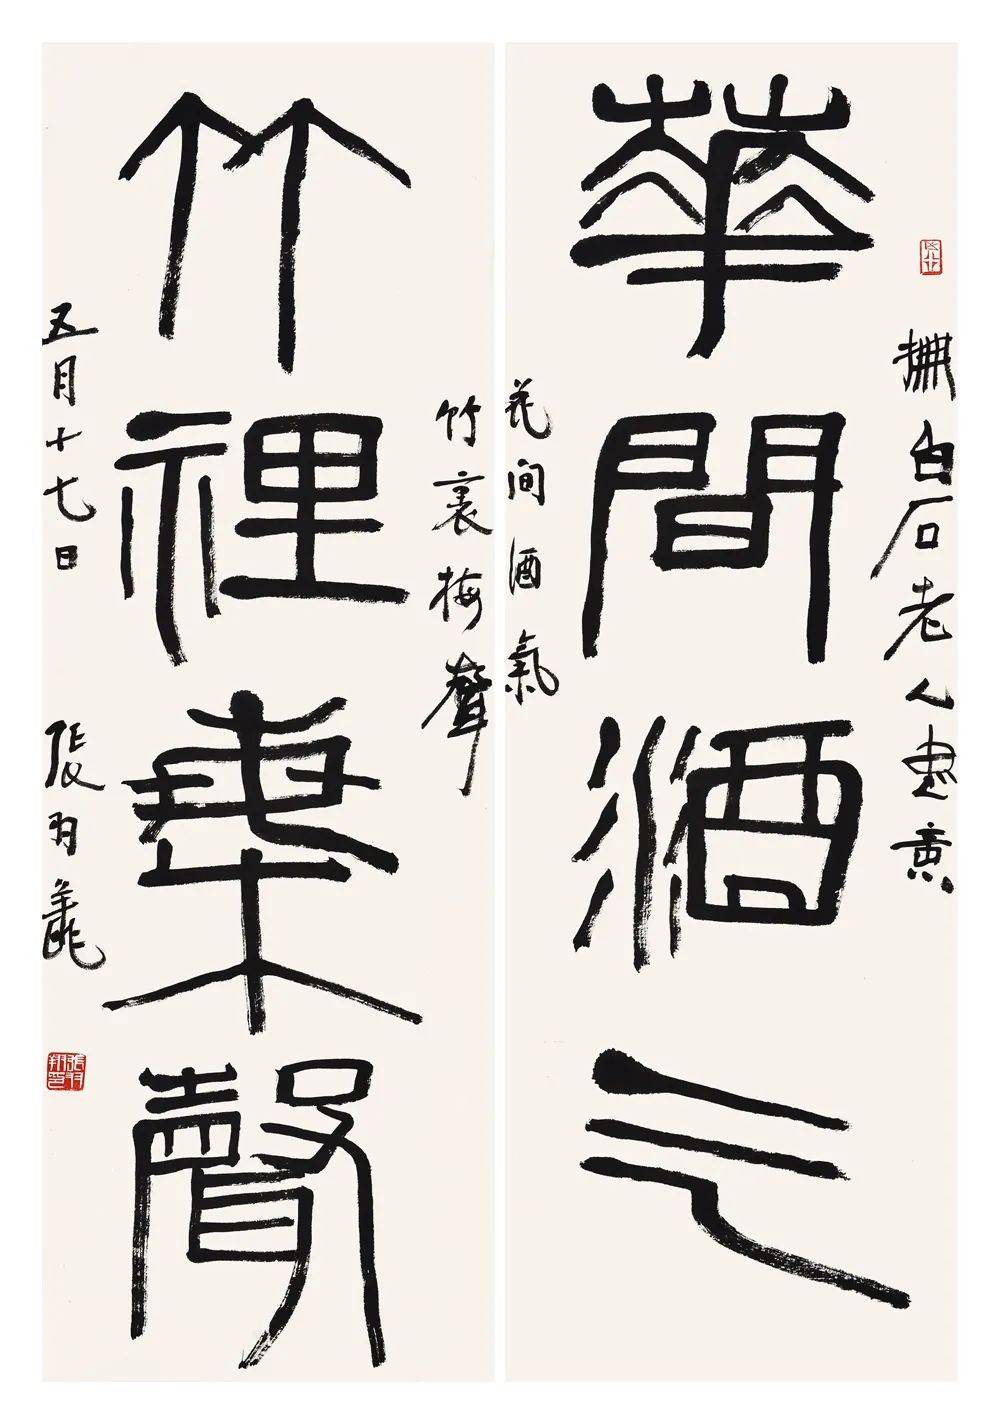 撫白石老人意
華間酒气
花间酒氣
竹裏棋聲
竹裡棊聲
五月十七日 張羽翔
張羽翔印